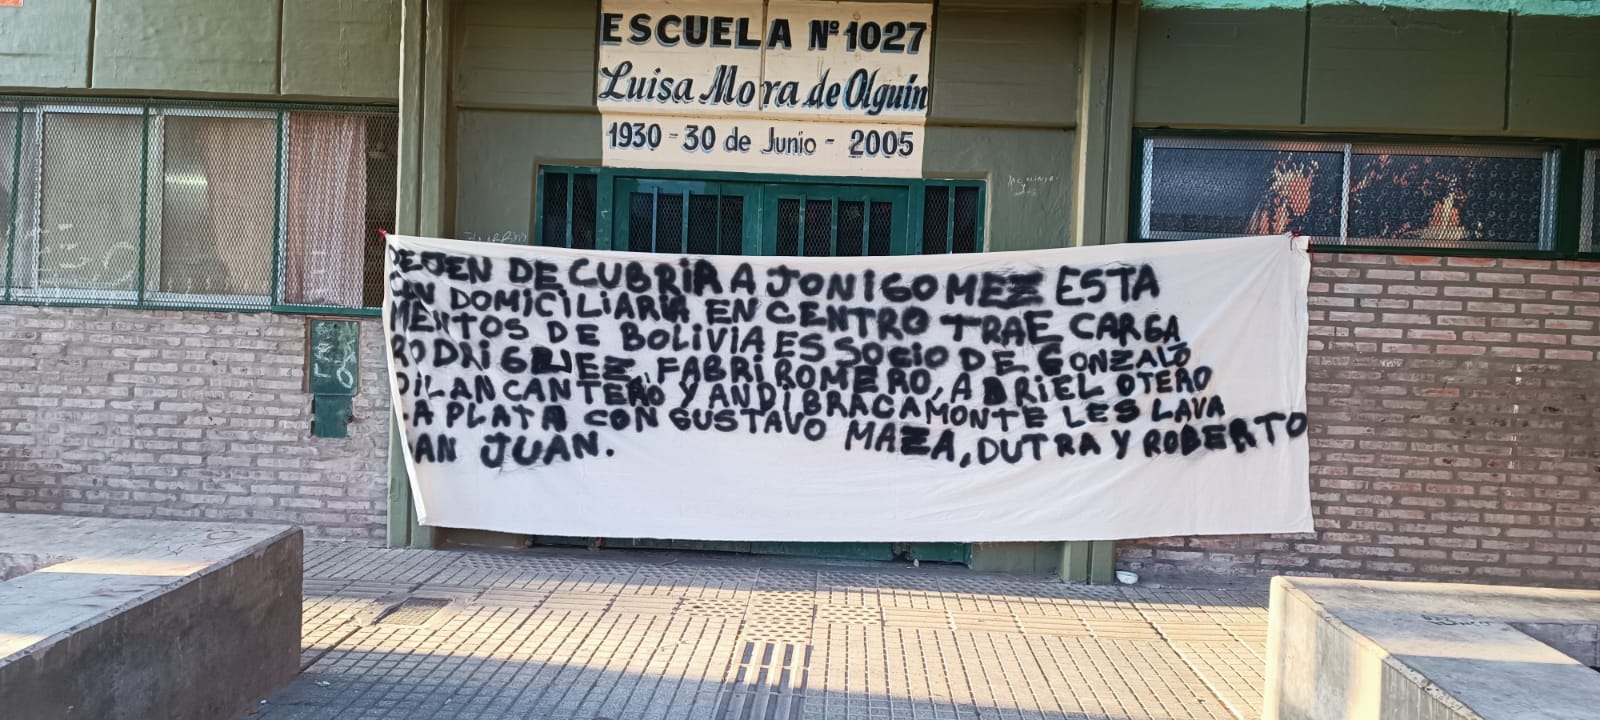 ESCUELA Nº 1027
Luisa Mora de Olguín
1930 - 30 de Junio - 2005
DEJEN DE CUBRIR A JONI GOMEZ ESTA
CON DOMICILIARIA EN CENTRO TRAE CARGA
MENTOS DE BOLIVIA ES SOCIO DE GONZALO
RODRIGUEZ, FABRI ROMERO, ADRIEL OTERO
DILAN CANTERO Y ANDI BRACAMONTE LES LAVA
LA PLATA CON GUSTAVO MAZA, DUTRA Y ROBERTO
SAN JUAN.